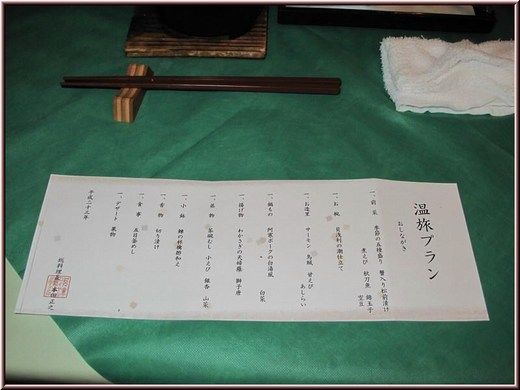 温旅プラン
おしながき
一、前菜 季節の五種盛り 蟹入り松前漬け 錦玉子
煮えび 秋刀魚 空豆
一、お椀 貝浅利の潮仕立て
一、お造里 サーモン 烏賊 甘えび
あしらい
一、鍋もの 阿寒ポークの白湯風
白菜
一、揚げ物 わかさぎの天婦羅 獅子唐
一、蒸物 茶碗むし 小えび 銀杏 山菜
一、小鉢 鰊の 和え
一、香物 切り漬け
一、食事 五目釜めし
一、デザート 果物
平成二十三年
総料理長 本田正之